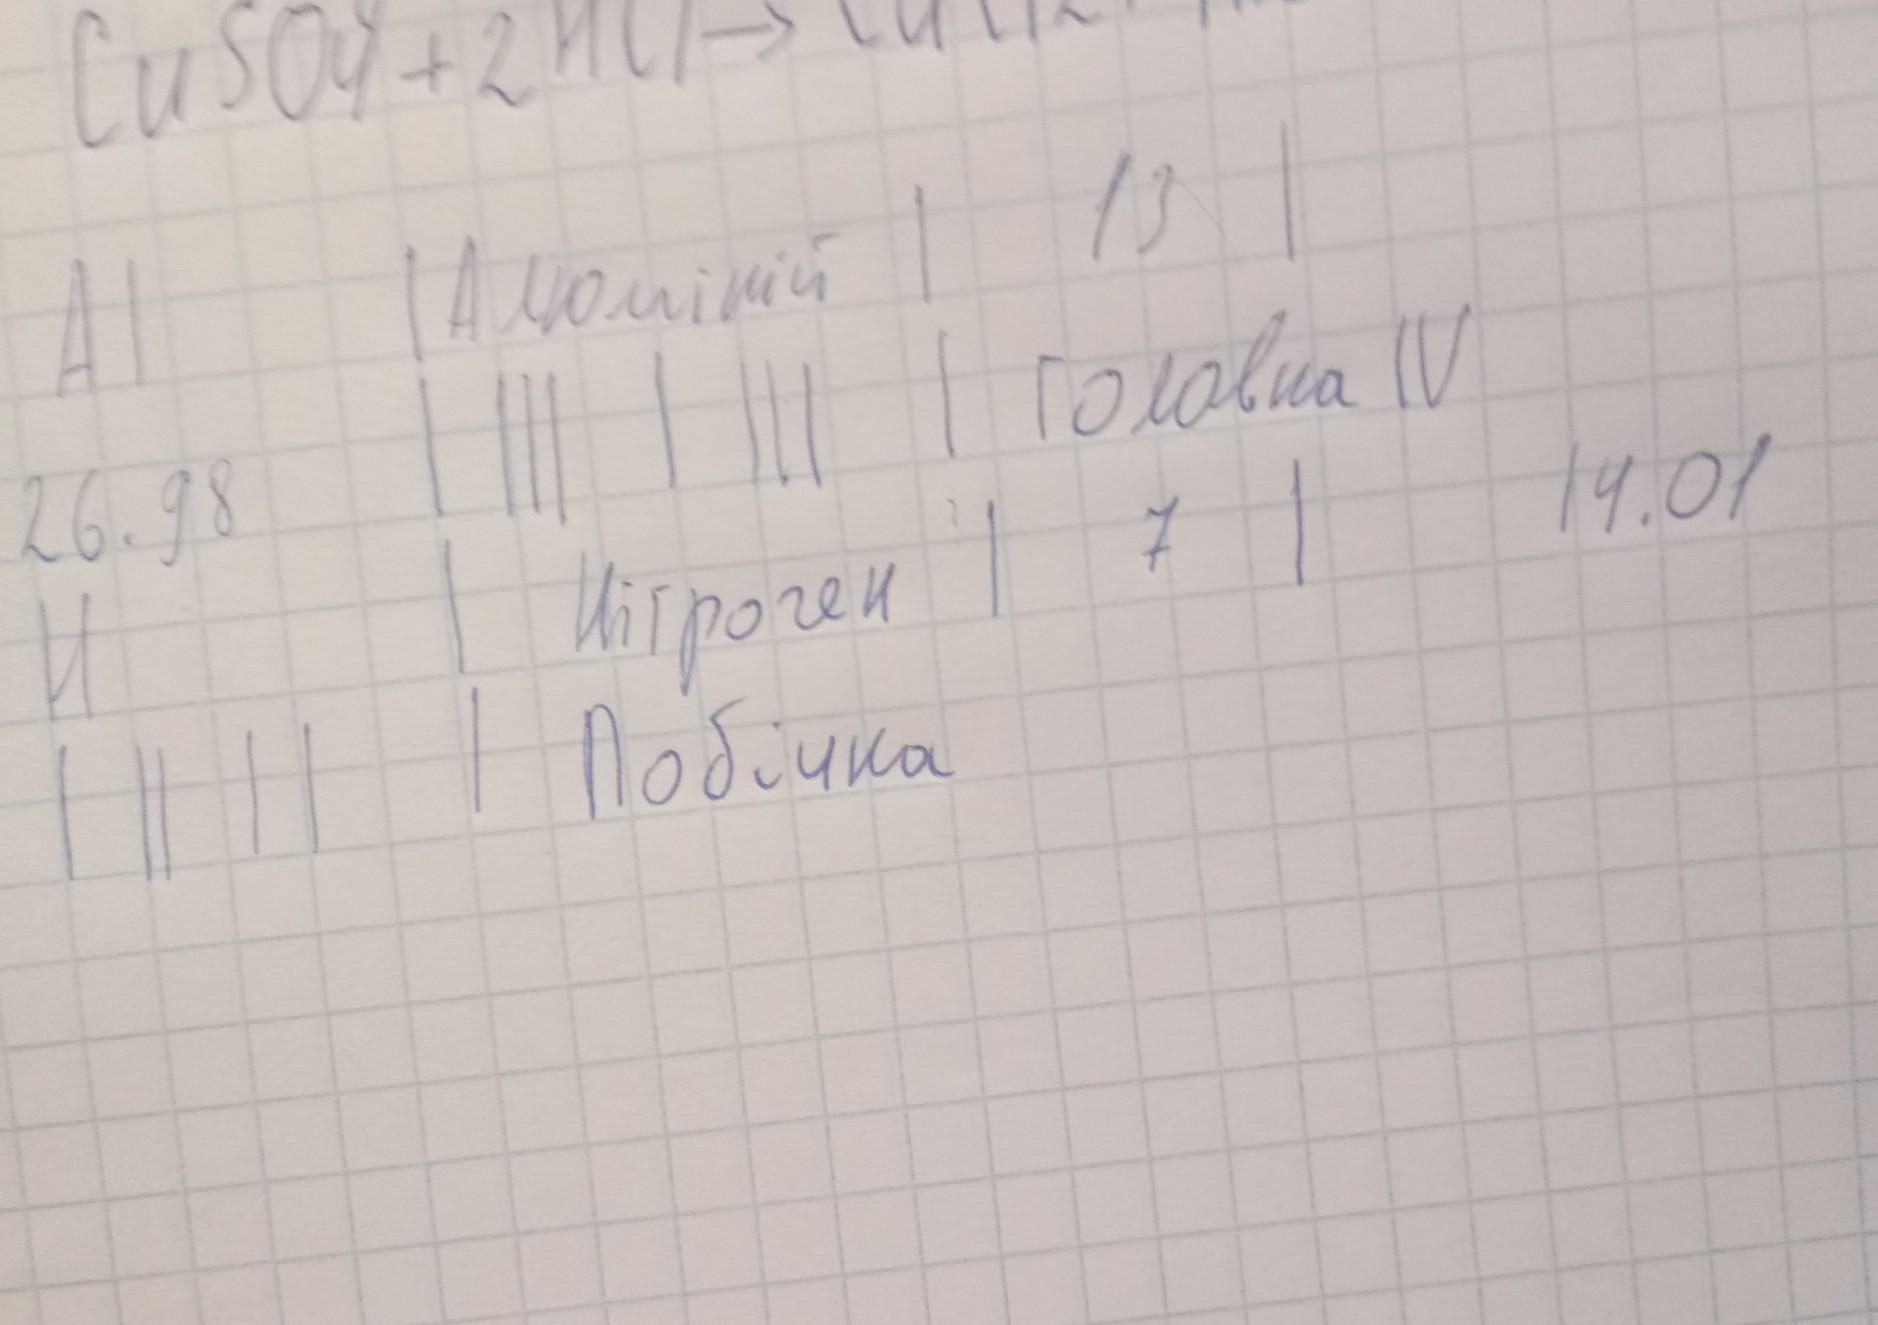 CuSO4+2HCl→CuCl2+
Al | Алюміній | 13 |
26.98 | III | III | Головна IV
N | Нітроген | 7 | 14.01
| II | | | Побічна